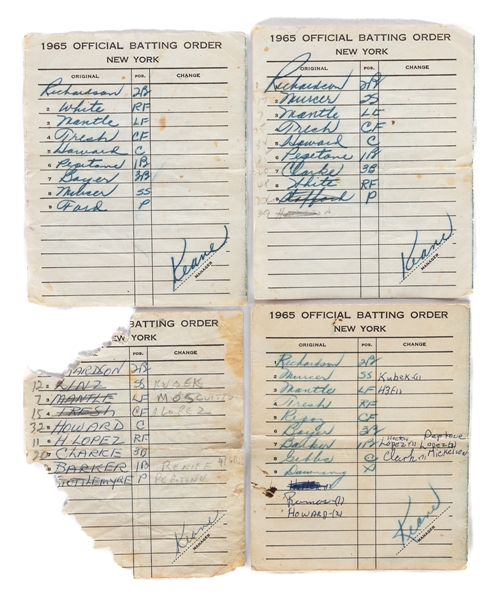 1965 OFFICIAL BATTING ORDER
NEW YORK
ORIGINAL POS. CHANGE
Richardson 2B
2 White RF
3 Mantle LF
4 Tresh CF
5 Howard C
6 Pepitone 1B
7 Boyer 3B
8 Murcer SS
9 Ford P
Keane
MANAGER
1965 OFFICIAL BATTING ORDER
NEW YORK
ORIGINAL POS. CHANGE
Richardson 2B
Murcer SS
Mantle LF
Tresh CF
Howard C
Pepitone 1B
Clarke 3B
White RF
Stafford P
Keane
MANAGER
BATTING ORDER
NEW YORK
POS. CHANGE
ARDSON 2B
12 LINZ SS KUBEK
7 MANTLE LF MOS
15 TRESH CF LOPEZ
32 HOWARD C
11 H LOPEZ RF
20 CLARKE 3B
BARKER 1B
STOTTLEMYRE P
Keane
MANAGER
1965 OFFICIAL BATTING ORDER
NEW YORK
ORIGINAL POS. CHANGE
Richardson 2B
Murcer SS Kubek-11
Mantle LF
Tresh RF
CF
Boyer 3B
Barker 1B
Gibbs C
Downing P
Clark-11 Mickelsen
Ramos-(1)
HOWARD-(2)
Keane
MANAGER